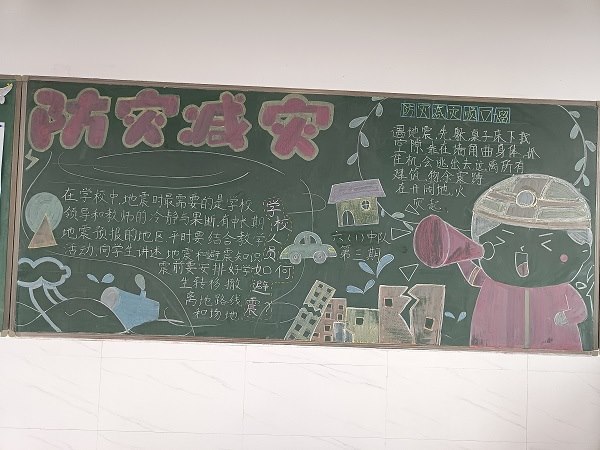 防灾减灾
在学校中,地震时最需要的是学校
领导和教师的冷静与果断,有中长期
地震预报的地区,平时要结合教学
活动,向学生讲述地震和避震知识
震前要安排好学
生转移撤
离地路线
和场地
学校人员如何避震?
六(1)中队
第三期
防灾减灾顺口溜
遇地震,先躲,桌子床下找
空隙,靠在墙角曲身体,抓
住机会逃出去,远离所有
在开阔地,
突起